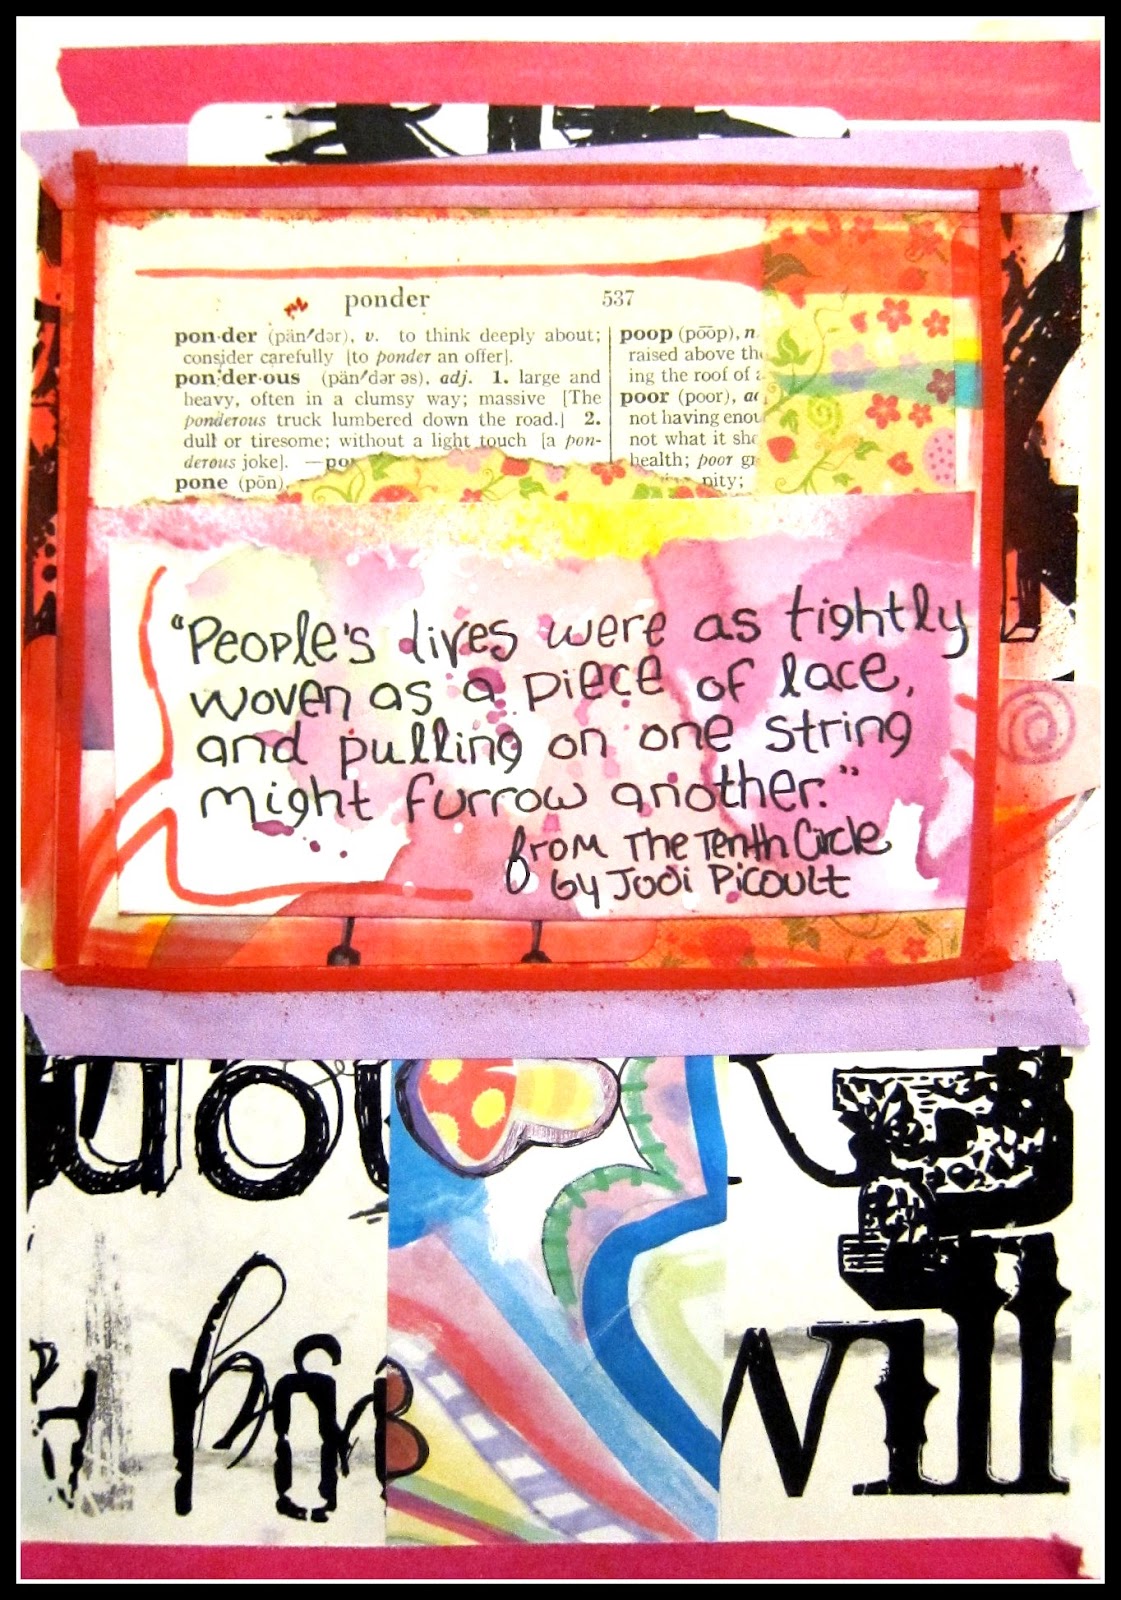 ponder 537
pon·der (pän′dər), v. to think deeply about;
consider carefully [to ponder an offer].
pon·der·ous (pän′dər əs), adj. 1. large and
heavy, often in a clumsy way; massive [The
ponderous truck lumbered down the road.] 2.
dull or tiresome; without a light touch [a pon-
derous joke]. —po
pone (pōn),
poop (po͞op), n.
raised above the
ing the roof of a
poor (poor), ad
not having enou
not what it sho
health; poor gr
pity;
"People's lives were as tightly
woven as a piece of lace,
and pulling on one string
might furrow another."
from The Tenth Circle
by Jodi Picoult
will